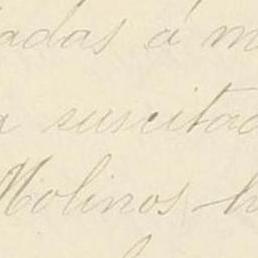 adas á m
a suscitad
Molinos h